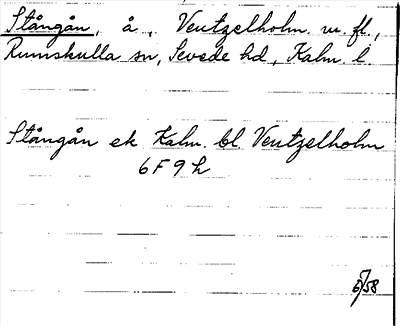 Stångån, å, Ventzelholm m. fl.,
Rumskulla sn, Sevede hd, Kalm. l.
Stångån ek Kalm. bl. Ventzelholm
6 F 9 h
6/58